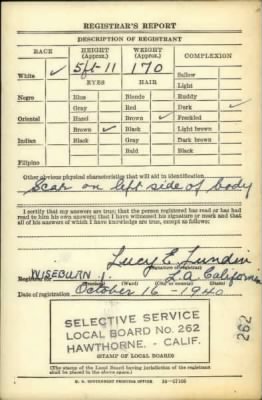 REGISTRAR'S REPORT
DESCRIPTION OF REGISTRANT
RACE HEIGHT (Approx.) WEIGHT (Approx.) COMPLEXION
5ft-11 170
White ✓ EYES HAIR Sallow
Light
Negro Blue Blonde Ruddy
Gray Red Dark ✓
Oriental Hazel Brown ✓ Freckled
Brown ✓ Black Light brown
Indian Black Gray Dark brown
Bald Black
Filipino
Other obvious physical characteristics that will aid in identification
Scar on left side of body
I certify that my answers are true; that the person registered has read or has had
read to him his own answers; that I have witnessed his signature or mark and that
all of his answers of which I have knowledge are true, except as follows:
Lucy E. Lundin
(Signature of registrar)
Registrar for WISEBURN L.A. California
(Precinct) (Ward) (City or county) (State)
Date of registration October 16 - 1940
SELECTIVE SERVICE
LOCAL BOARD NO. 262
HAWTHORNE. - CALIF.
(STAMP OF LOCAL BOARD)
(The stamp of the Local Board having jurisdiction of the registrant
shall be placed in the above space.)
U. S. GOVERNMENT PRINTING OFFICE 16-17105
262